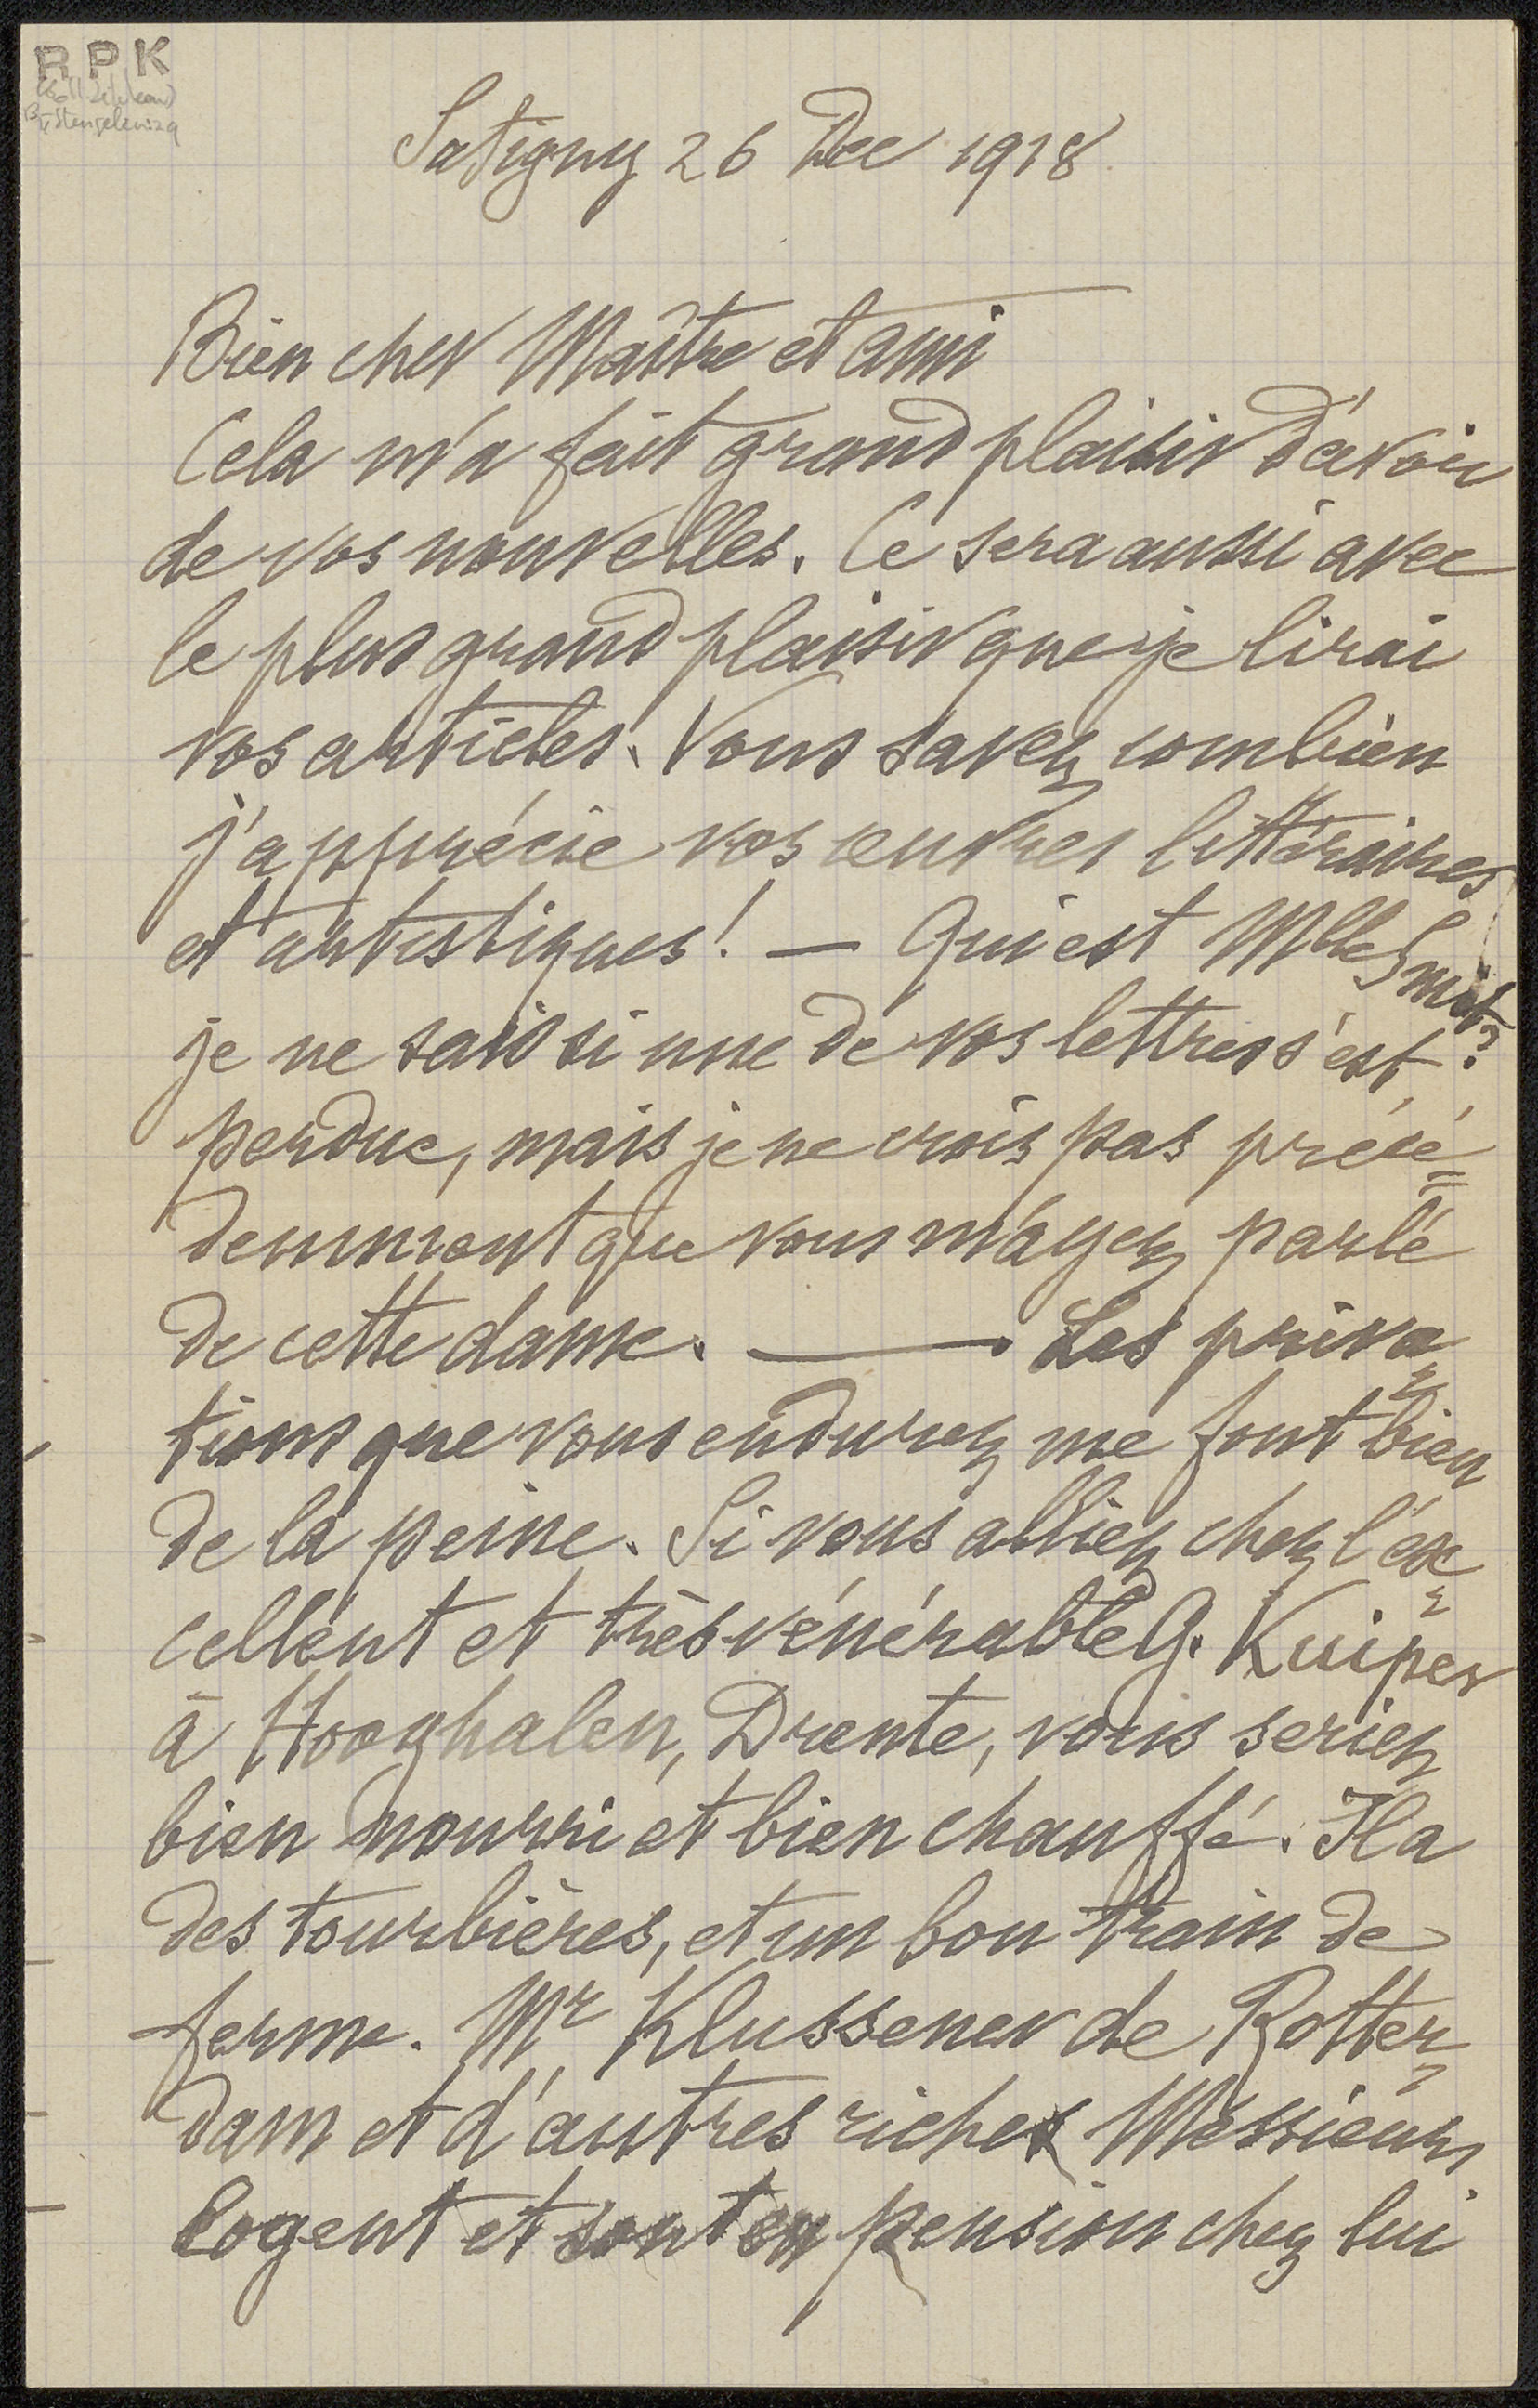 RPK
Satigny 26 Dec 1918
Bien cher Maître et ami
Cela m'a fait grand plaisir d'avoir
de vos nouvelles. Ce sera aussi avec
le plus grand plaisir que je lirai
vos articles. Vous savez combien
j'apprécie vos œuvres littéraires
et artistiques! — Qui est Mlle Smit?
je ne sais si une de vos lettres s'est
perdue, mais je ne crois pas précé=
demment que vous m'ayez parlé
de cette dame. — Les priva=
tions que vous endurez me font bien
de la peine. Si vous alliez chez l'ex=
cellent et très vénérable G. Kuiper
à Hooghalen, Drente, vous seriez
bien nourri et bien chauffé. Il a
des tourbières, et un bon train de
ferme. Mr Klussener de Rotter=
dam et d'autres riches Messieurs
logent et sont en pension chez lui